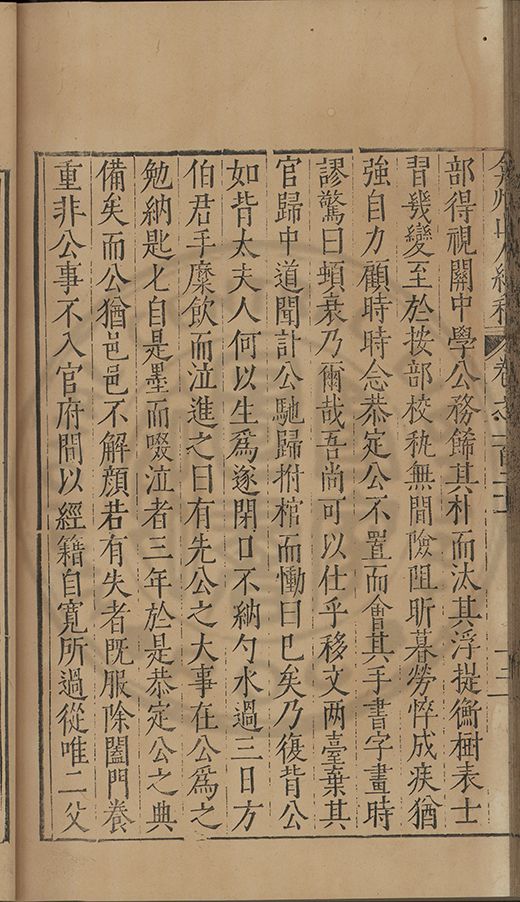 弇州山人續稿 卷之一百三十 十三
部得視關中學公務餙其朴而汰其浮提衡樹表士
習㡬變至於按部校秇無間險阻昕暮勞悴成疾猶
強自力顧時時念恭定公不置而會其手書字畫時
謬驚曰頓衰乃爾哉吾尚可以仕乎移文两臺棄其
官歸中道聞訃公馳歸拊棺而慟曰已矣乃復背公
如背太夫人何以生爲遂閉口不納勺水過三日方
伯君手糜飲而泣進之曰有先公之大事在公爲之
勉納匙匕自是墨而啜泣者三年於是恭定公之典
備矣而公猶邑邑不解顔若有失者既服除闔門養
重非公事不入官府間以經籍自寬所過從唯二父